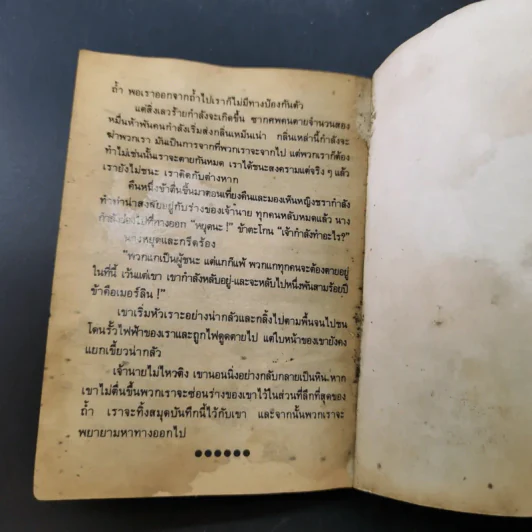 ถ้ำ พอเราออกจากถ้ำไปเราก็ไม่มีทางป้องกันตัว
แต่สิ่งเลวร้ายกำลังจะเกิดขึ้น ซากศพคนตายจำนวนสอง
หมื่นห้าพันคนกำลังเริ่มส่งกลิ่นเหม็นเน่า กลิ่นเหล่านี้กำลังจะ
ฆ่าพวกเรา มันเป็นการจากที่พวกเราจะจากไป แต่พวกเราก็ต้อง
ทำไม่เช่นนั้นเราจะตายกันหมด เราได้ชนะสงครามแต่จริง ๆ แล้ว
เรายังไม่ชนะ เราติดกับต่างหาก
คืนหนึ่งข้าตื่นขึ้นมาตอนเที่ยงคืนและมองเห็นหญิงชรากำลัง
ทำท่าน่าสงสัยอยู่กับร่างของเจ้านาย ทุกคนหลับหมดแล้ว นาง
กำลังไปที่ทางออก "หยุดนะ !" ข้าตะโกน "เจ้ากำลังทำอะไร?"
นางหยุดและกรีดร้อง
"พวกแกเป็นผู้ชนะ แต่แกก็แพ้ พวกแกทุกคนจะต้องตายอยู่
ในที่นี้ เว้นแต่เขา เขากำลังหลับอยู่-และจะหลับไปหนึ่งพันสามร้อยปี
ข้าคือเมอร์ลิน !"
เขาเริ่มหัวเราะอย่างน่ากลัวและกลิ้งไปตามพื้นจนไปชน
โดนรั้วไฟฟ้าของเราและถูกไฟดูดตายไป แต่ใบหน้าของเขายังคง
แยกเขี้ยวน่ากลัว
เจ้านายไม่ไหวติง เขานอนนิ่งอย่างกลับกลายเป็นหิน หาก
เขาไม่ตื่นขึ้นพวกเราจะซ่อนร่างของเขาไว้ในส่วนที่ลึกที่สุดของ
ถ้ำ เราจะทิ้งสมุดบันทึกนี้ไว้กับเขา และจากนั้นพวกเราจะ
พยายามหาทางออกไป
●●●●●●